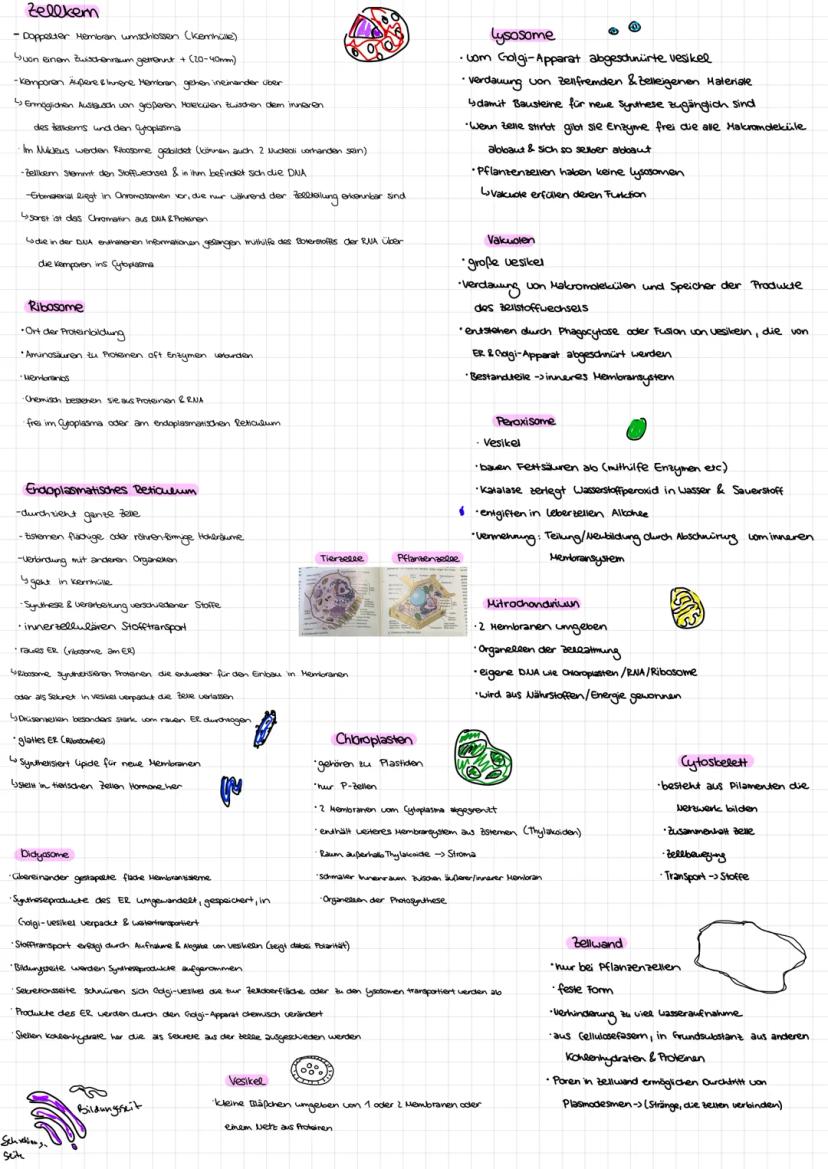 Zellkern
- Doppelter Membran umschlossen (Kernhülle)
↳ von einem Zwischenraum getrennt + (20-40nm)
- Kernporen Äußere & Innere Membran gehen ineinander über
↳ Ermöglichen Austausch von größeren Molekülen zwischen dem inneren
des Zellkerns und den Cytoplasma
· Im Nukleus werden Ribosome gebildet (können auch 2 Nucleoli vorhanden sein)
- Zellkern stemmt den Stoffwechsel & in ihm befindet sich die DNA
- Erbmaterial liegt in Chromosomen vor, die nur während der Zellteilung erkennbar sind
↳ sonst ist das Chromatin aus DNA & Proteinen
↳ die in der DNA enthaltenen Informationen gelangen mithilfe des Botenstoffes der RNA über
die Kernporen ins Cytoplasma
Ribosome
· Ort der Proteinbildung
· Aminosäuren zu Proteinen oft Enzymen verbunden
· Membranlos
· Chemisch bestehen sie aus Proteinen & RNA
· frei im Cytoplasma oder am endoplasmatischen Reticulum
Endoplasmatisches Reticulum
- durchzieht ganze Zelle
- Zisternen flächige oder röhrenförmige Hohlräume
- Verbindung mit anderen Organellen
↳ geht in Kernhülle
· Synthese & Verarbeitung verschiedener Stoffe
· innerzellulären Stofftransport
· raues ER (ribosome am ER)
↳ Ribosome synthetisieren Proteinen die entweder für den Einbau in Membranen
oder als Sekret in Vesikel verpackt die Zelle verlassen
↳ Drüsenzellen besonders stark vom rauen ER durchzogen
· glattes ER (Ribosomfrei)
↳ Synthetisiert Lipide für neue Membranen
↳ stellt in tierischen Zellen Hormone her
Didyosome
· Übereinander gestapelte flache Membranzisterne
· Syntheseprodukte des ER umgewandelt, gespeichert, in
Golgi-Vesikel verpackt & weitertransportiert
· Stofftransport erfolgt durch Aufnahme & Abgabe von Vesikeln (zeigt dabei Polarität)
· Bildungsseite werden Syntheseprodukte aufgenommen
· Sekretionsseite schnüren sich Golgi-Vesikel die zur Zelloberfläche oder zu den Lysosomen transportiert werden ab
· Produkte des ER werden durch den Golgi-Apparat chemisch verändert
· Stellen Kohlenhydrate her die als Sekrete aus der Zelle ausgeschieden werden
Bildungsseit
Seite
Vesikel
· kleine Bläßchen umgeben von 1 oder 2 Membranen oder
einem Netz aus Proteinen
Tierzelle
Pflanzenzelle
Chloroplasten
· gehören zu Plastiden
· nur P-Zellen
· 2 Membranen vom Cytoplasma abgegrenzt
· enthält weiteres Membransystem aus Zisternen (Thylakoiden)
· Raum außerhalb Thylakoide → Stroma
· schmaler Innenraum zwischen äußerer/innerer Membran
· Organellen der Photosynthese
Lysosome
· vom Golgi-Apparat abgeschnürte Vesikel
· Verdauung von zellfremden & zelleigenen Materiale
↳ damit Bausteine für neue Synthese zugänglich sind
· Wenn Zelle stirbt gibt sie Enzyme frei die alle Makromoleküle
abbaut & sich so selber abbaut
· Pflanzenzellen haben keine Lysosomen
↳ Vakuole erfüllen deren Funktion
Vakuolen
· große Vesikel
· Verdauung von Makromolekülen und Speicher der Produkte
des Zellstoffwechsels
· entstehen durch Phagocytose oder Fusion von Vesikeln, die von
ER & Golgi-Apparat abgeschnürt werden
· Bestandteile → inneres Membransystem
Peroxisome
· Vesikel
· bauen Fettsäuren ab (mithilfe Enzymen etc)
· Katalase zerlegt Wasserstoffperoxid in Wasser & Sauerstoff
· entgiften in Leberzellen Alkohole
· Vermehrung: Teilung/Neubildung durch Abschnürung vom inneren
Membransystem
Mitrochondrium
· 2 Membranen umgeben
· Organellen der Zellatmung
· eigene DNA wie Chloroplasten /RNA/Ribosome
· wird aus Nährstoffen/Energie gewonnen
Cytoskelett
· besteht aus Filamenten die
Netzwerk bilden
· Zusammenhalt Zelle
· Zellbewegung
· Transport → Stoffe
Zellwand
· nur bei Pflanzenzellen
· feste Form
· Verhinderung zu viel Wasseraufnahme
· aus Cellulosefasern, in Grundsubstanz aus anderen
Kohlenhydraten & Proteinen
· Poren in Zellwand ermöglichen Durchtritt von
Plasmodesmen → (Stränge, die Zellen verbinden)